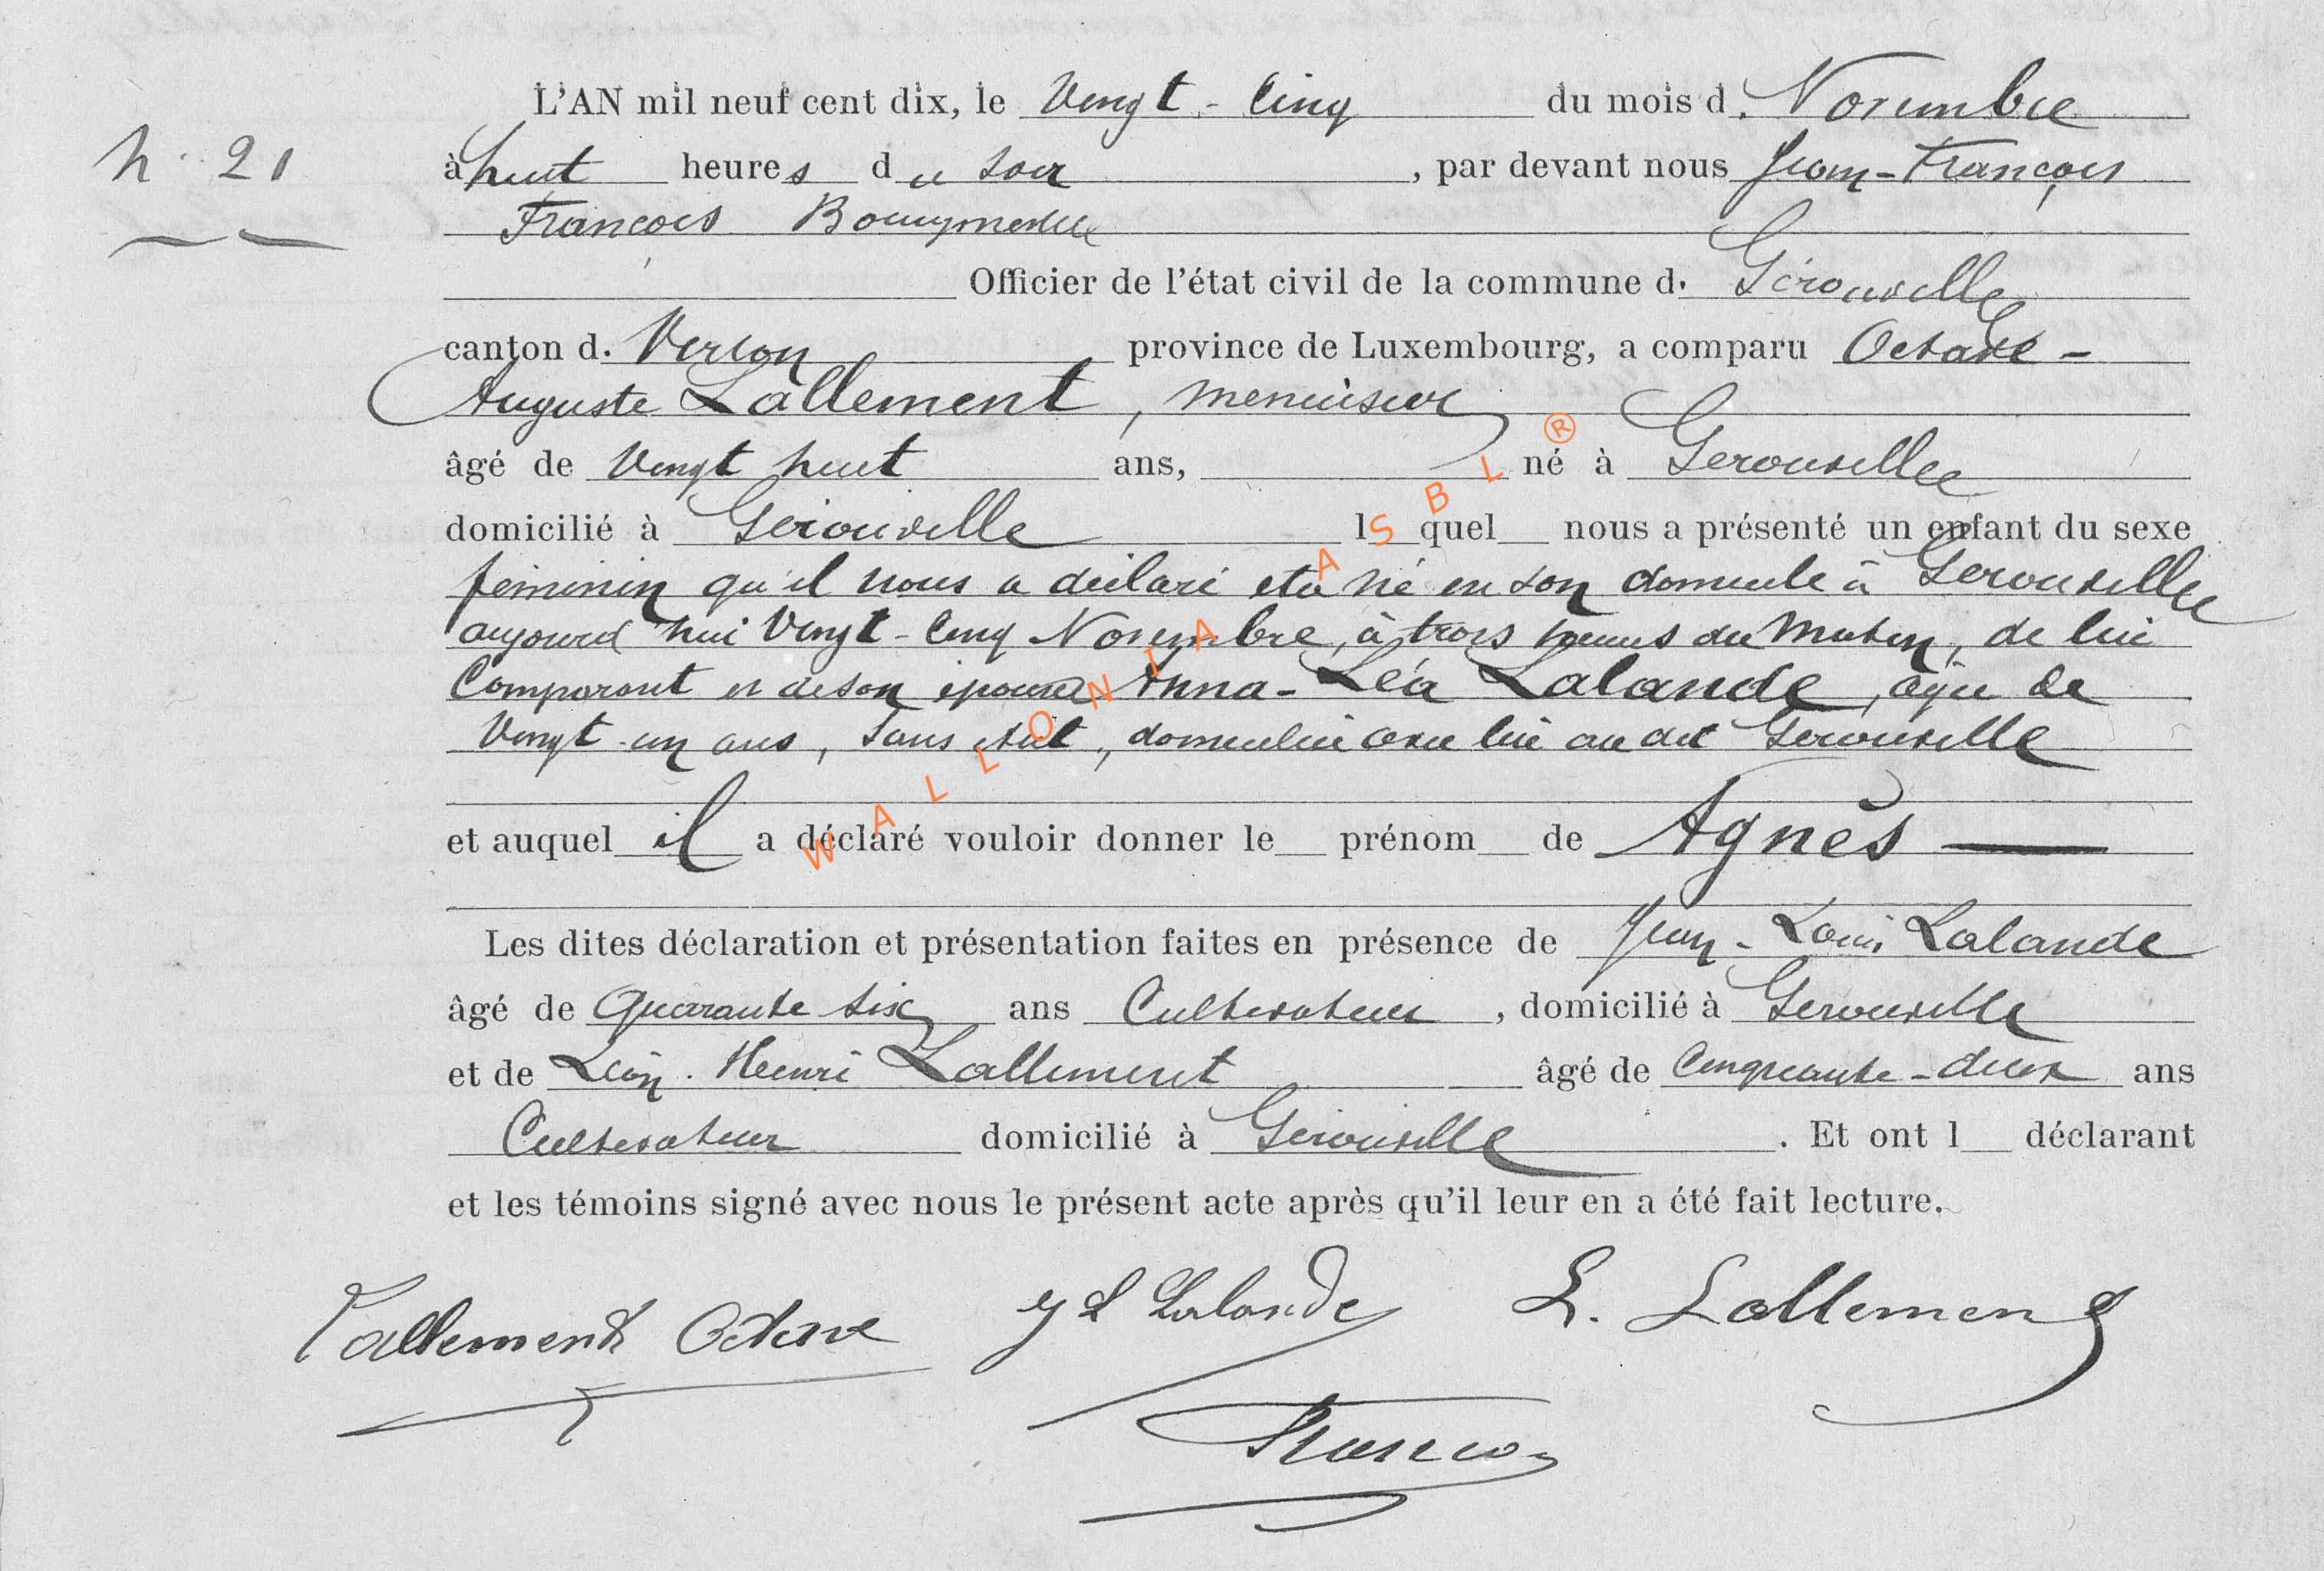 L'AN mil neuf cent dix, le Vingt-Cinq du mois d. Novembre
N° 21
à huit heures du soir, par devant nous Jean-François
François
Officier de l'état civil de la commune d. Gérouville
canton d. Virton province de Luxembourg, a comparu Octave-
Auguste Lallement, menuisier
âgé de Vingt huit ans, né à Gérouville
domicilié à Gérouville l quel nous a présenté un enfant du sexe
féminin qu'il nous a déclaré être né en son domicile à Gérouville
aujourd'hui Vingt-Cinq Novembre, à trois heures du matin, de lui
Comparant et de son épouse Anna-Léa Lalande, âgée de
Vingt-un ans, sans état, domiciliée avec lui au dit Gérouville
et auquel il a déclaré vouloir donner le prénom de Agnès —
Les dites déclaration et présentation faites en présence de Jean-Louis Lalande
âgé de Quarante six ans Cultivateur, domicilié à Gérouville
et de Léon-Henri Lallement âgé de Cinquante-deux ans
Cultivateur domicilié à Gérouville. Et ont l déclarant
et les témoins signé avec nous le présent acte après qu'il leur en a été fait lecture.
Lallement Octave J L Lalande L. Lallement
WALLONIA ASBL ®